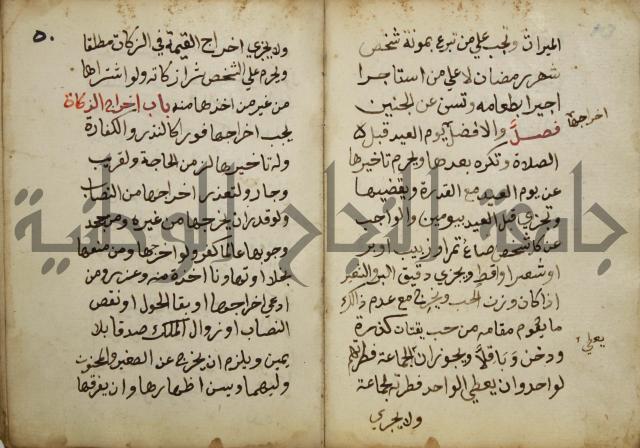 الميراث وتجب على من تبرع بمونة شخص
شهر رمضان لا على من استاجر
اجيرا بطعامه وتسن عن الجنين
اخراجها
فصل والافضل يوم العيد قبل
الصلاة وتكره بعدها ويحرم تاخيرها
عن يوم العيد مع القدرة ويقضيها
وتجزي قبل العيد بيومين والواجب
عن كل شخص صاع تمر او زبيب او بر
او شعير او اقط ويجزي دقيق البر والشعير
اذا كان وزن الحب ويخرج مع عدم ذالك
ما يقوم مقامه من حب يقتات كذرة
يعطي
ودخن وباقلا ويجوز ان الجماعة فطرتهم
لواحد وان يعطي الواحد فطرته لجماعة
ولا يجزي
٥٠
ولا يجزي اخراج القيمة في الزكاة مطلقا
ويحرم على الشخص شرا زكاته ولو اشتراها
من غير من اخذها منه باب اخراج الزكاة
يجب اخراجها فورا كالنذر والكفارة
وله تاخيرها لزمن الحاجة ولقريب
وجار ولتعذر اخراجها من النصاب
ولو قدر ان يخرجها من غيره ومن جحد
وجوبها عالما كفر ولو اخرجها ومن منعها
بخلا او تهاونا اخذت منه وعزر ومن
ادعى اخراجها او بقا الحول او نقص
النصاب او زوال الملك صدق بلا
يمين ويلزم ان يخرج عن الصغير والمجنون
وليهما ويسن اظهارها وان يفرقها
جامعة النجاح الوطنية